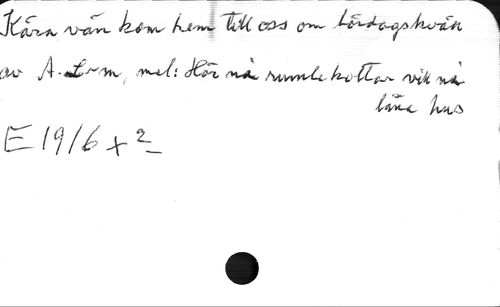 Kära vän kom hem till oss om lördagskväll
av A. L-m, mel: Hör nå rumlekottar vill nå
låna hus
E 19/6 + 2